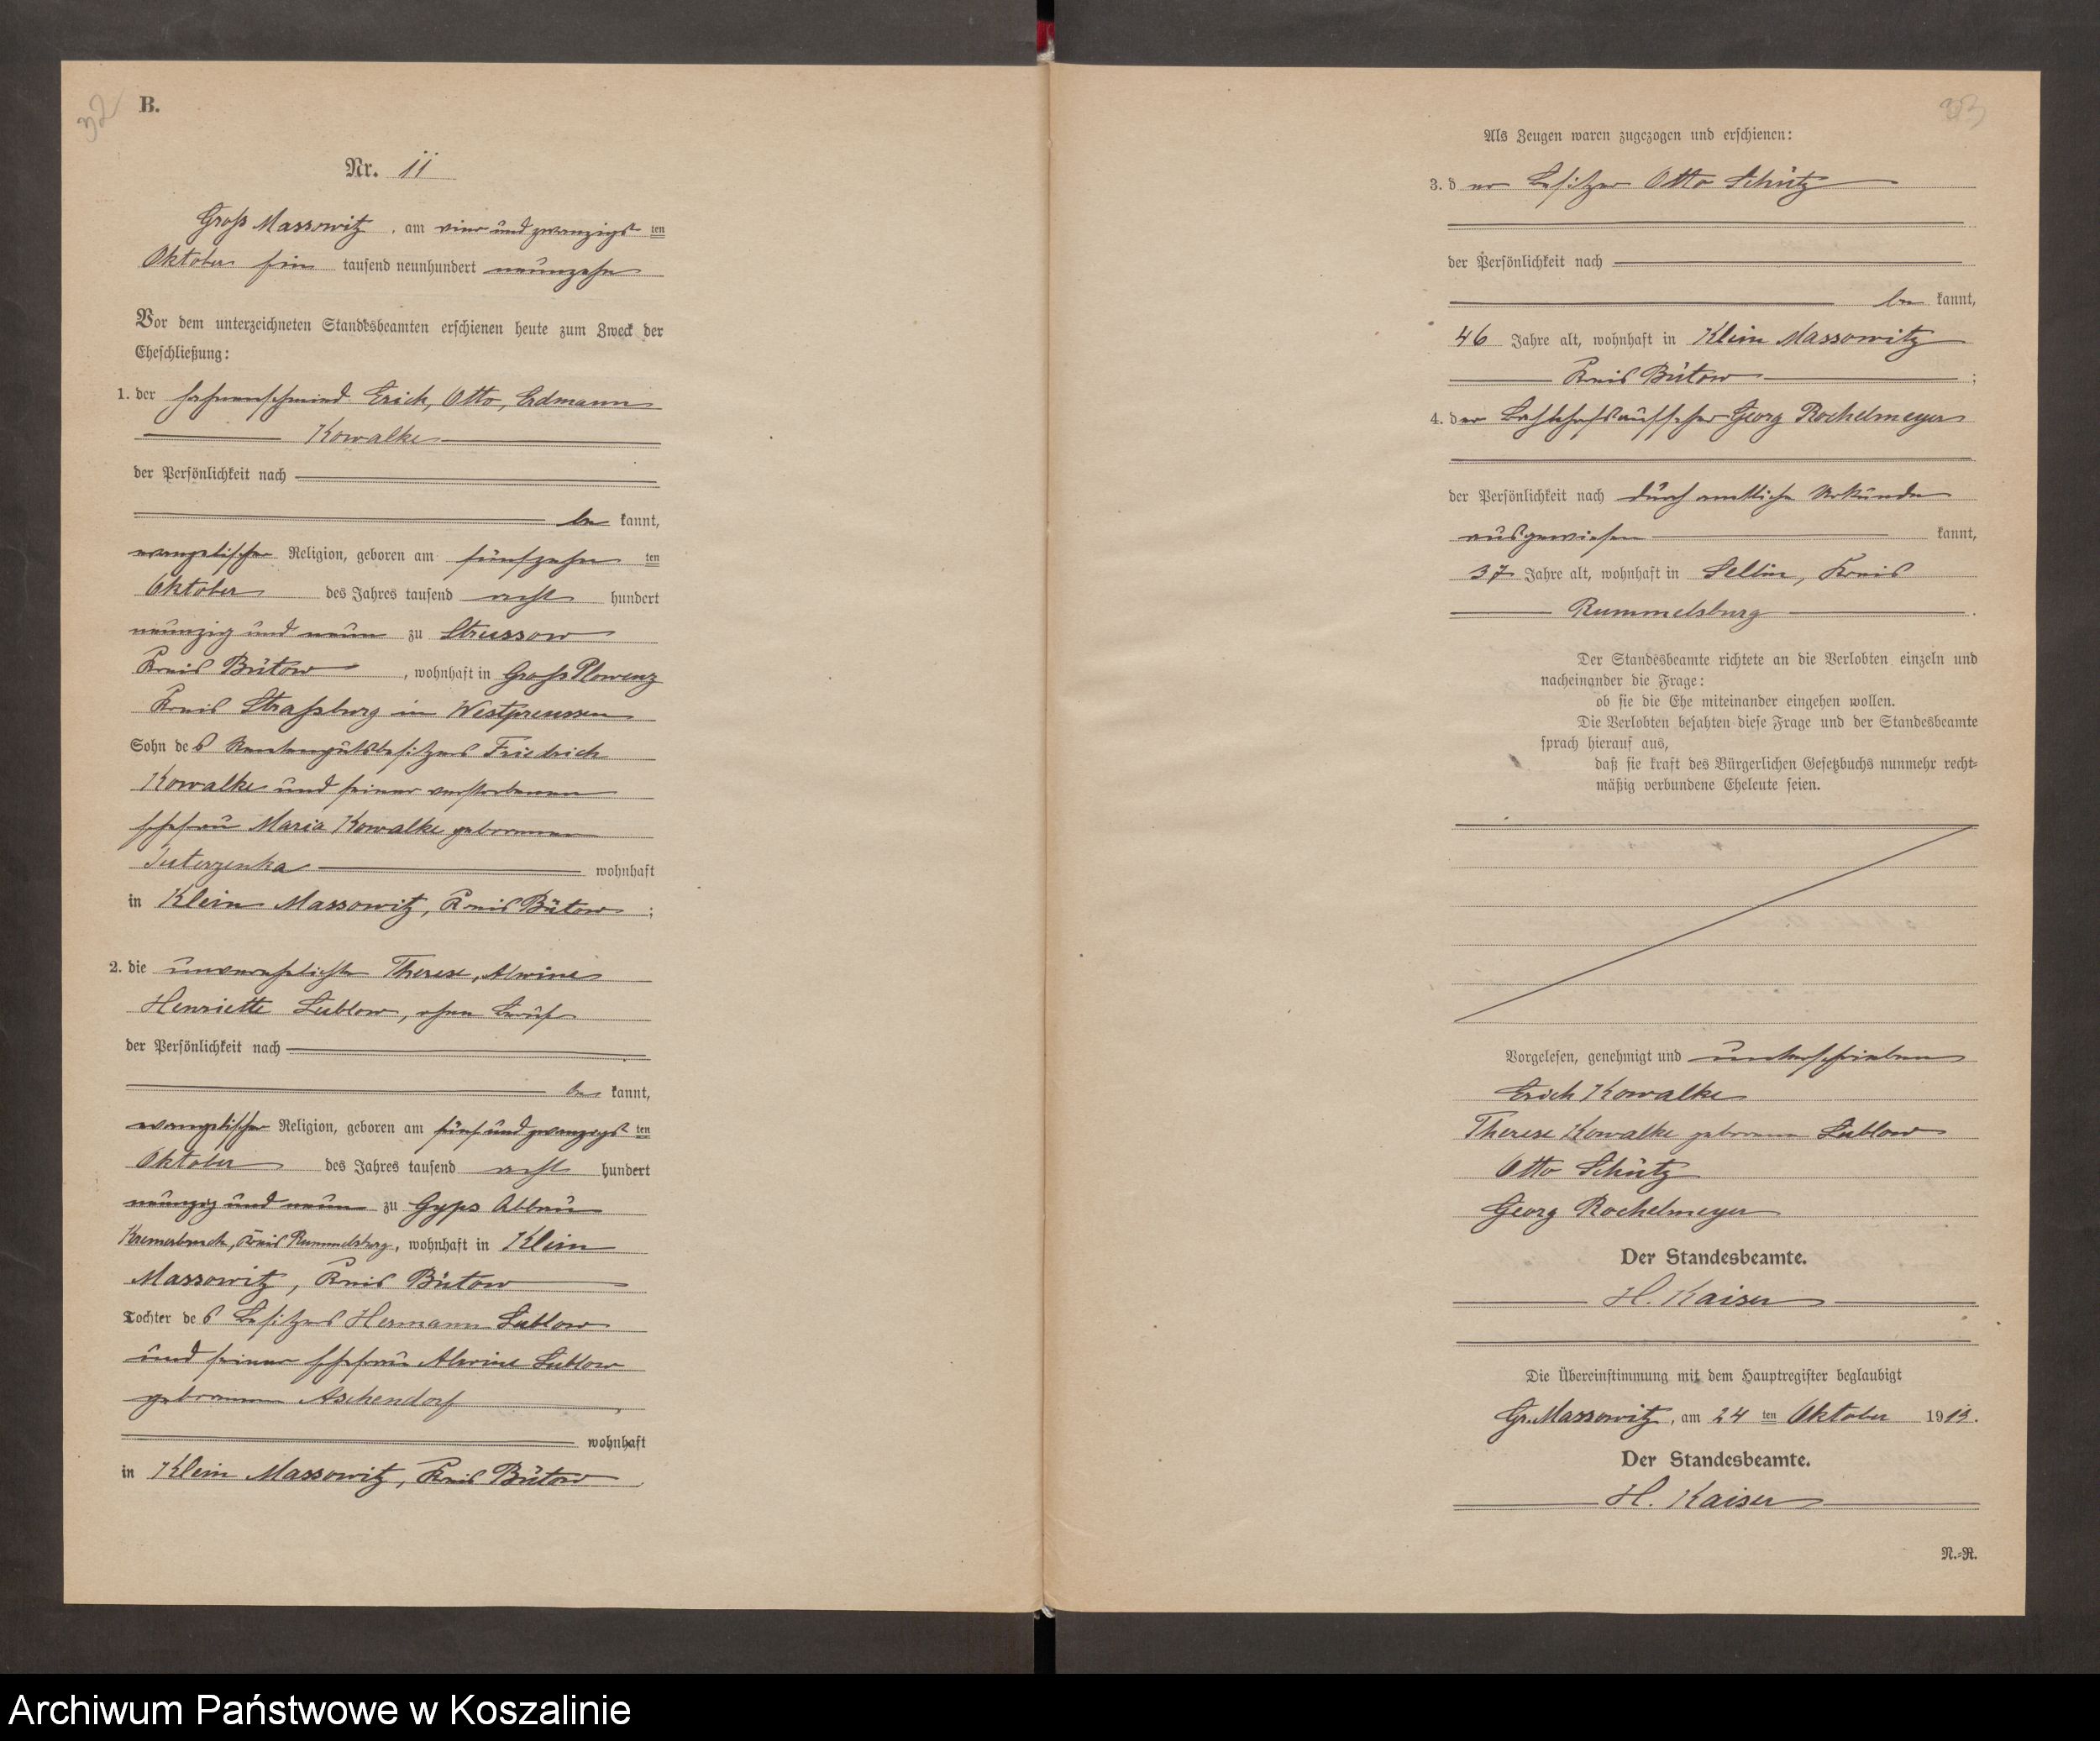 32
B.
Nr. 11
Groß Massowitz, am vierundzwanzigst ten
Oktober ein tausend neunhundert neunzehn
Vor dem unterzeichneten Standesbeamten erschienen heute zum Zweck der
Eheschließung:
1. der Fahnenschmied Erich, Otto, Erdmann
Kowalke
der Persönlichkeit nach
be kannt,
evangelischer Religion, geboren am fünfzehn ten
Oktober des Jahres tausend acht hundert
neunzig und neun zu Strussow
Kreis Bütow, wohnhaft in Groß Plowenz
Kreis Straßburg in Westpreussen
Sohn des Rentengutsbesitzers Friedrich
Kowalke und seiner verstorbenen
Ehefrau Maria Kowalke geborenen
wohnhaft
in Klein Massowitz, Kreis Bütow;
2. die unverehelichte Therese, Alwine
Henriette Lüblow, ohne Beruf
der Persönlichkeit nach
be kannt,
evangelischer Religion, geboren am fünf und zwanzigst ten
Oktober des Jahres tausend acht hundert
neunzig und neun zu Gyps Abbau
Kremerbruch, Kreis Rummelsburg, wohnhaft in Klein
Massowitz, Kreis Bütow
Tochter des Besitzers Hermann Lüblow
und seiner Ehefrau Alwine Lüblow
geborenen Aschendorf
wohnhaft
in Klein Massowitz, Kreis Bütow
33
Als Zeugen waren zugezogen und erschienen:
3. der Besitzer Otto Schütz
der Persönlichkeit nach
be kannt,
46 Jahre alt, wohnhaft in Klein Massowitz
Kreis Bütow;
4. der Georg Rochelmeyer
der Persönlichkeit nach durch amtliche Urkunde
ausgewiesen kannt,
37 Jahre alt, wohnhaft in Sellin, Kreis
Rummelsburg.
Der Standesbeamte richtete an die Verlobten einzeln und
nacheinander die Frage:
ob sie die Ehe miteinander eingehen wollen.
Die Verlobten bejahten diese Frage und der Standesbeamte
sprach hierauf aus,
daß sie kraft des Bürgerlichen Gesetzbuchs nunmehr recht-
mäßig verbundene Eheleute seien.
Vorgelesen, genehmigt und unterschrieben
Erich Kowalke
Therese Kowalke geborene Lüblow
Otto Schütz
Georg Rochelmeyer
Der Standesbeamte.
H. Kaiser
Die Übereinstimmung mit dem Hauptregister beglaubigt
Gr. Massowitz, am 24 ten Oktober 1919.
Der Standesbeamte.
H. Kaiser
N.-R.
Archiwum Państwowe w Koszalinie